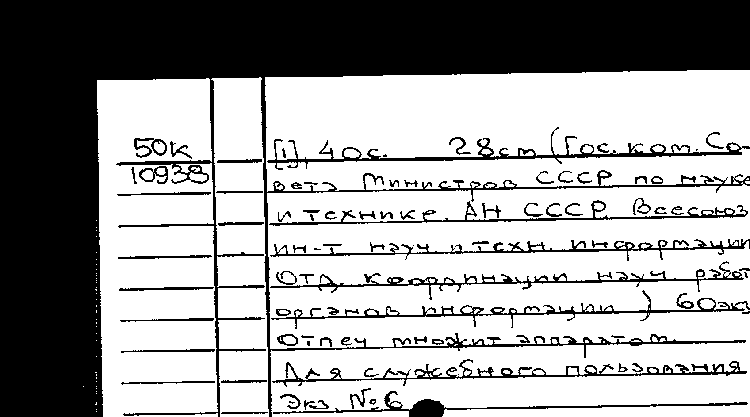 50к
10938
[1], 40с. 28см (Гос. ком. Со-
вета Министров СССР по науке
и технике. АН СССР. Всесоюз
ин-т науч и техн. информации
Отд. координации науч. работ
органов информации) 60экз
Отпеч множит аппаратом.
Для служебного пользования
Экз. №6